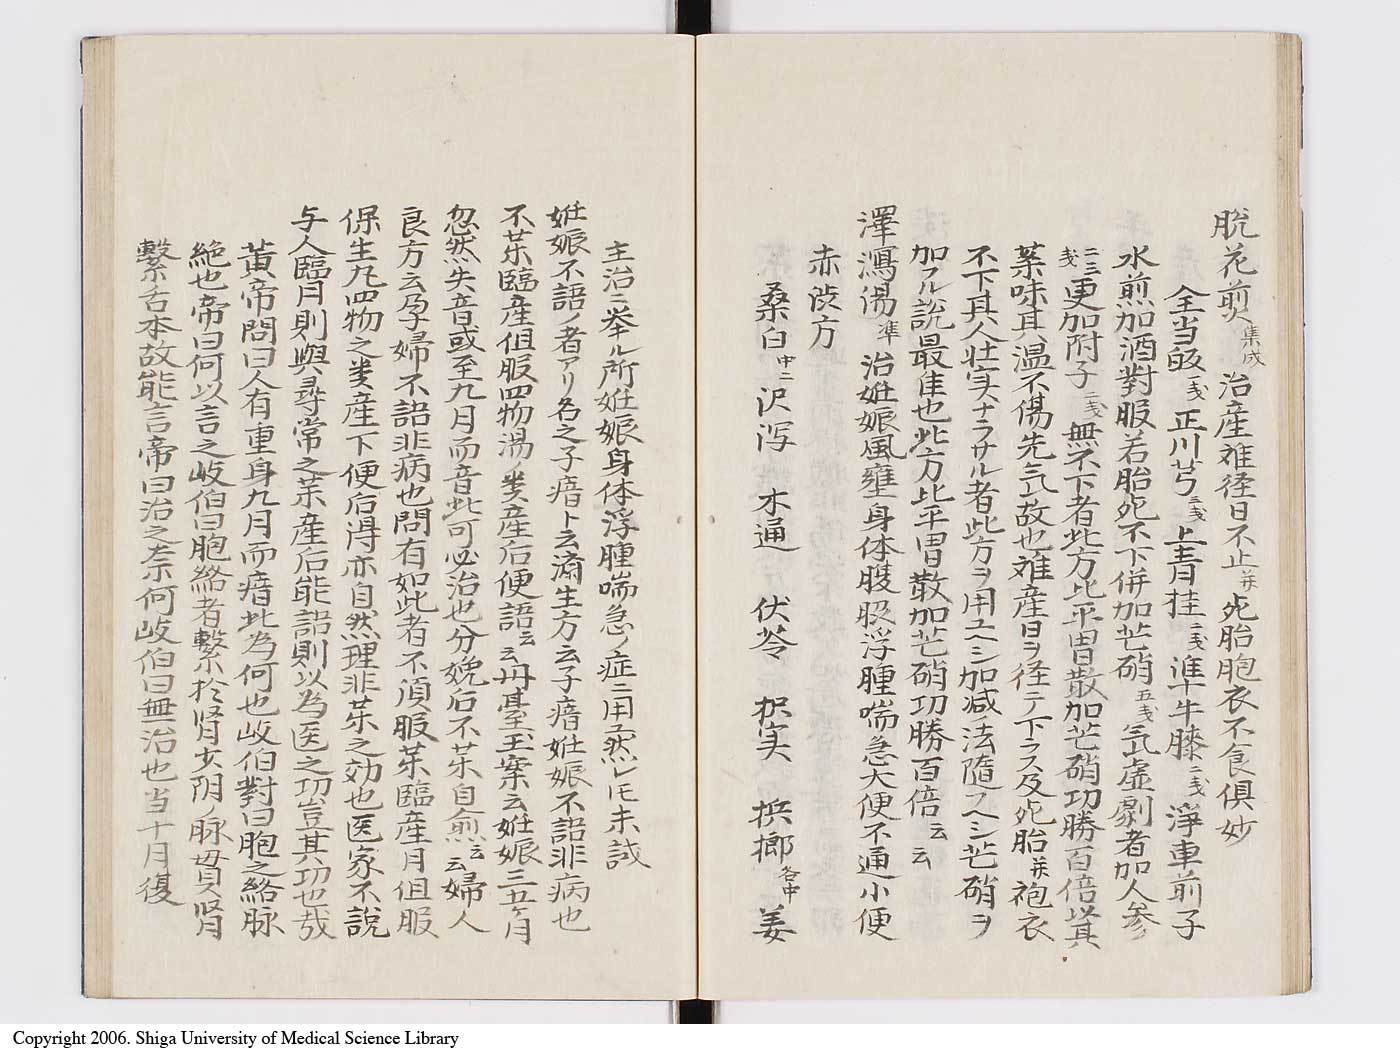 脱花煎集成 治産难径日不止并死胎胞衣不食俱妙
全当皈戔正川芎三戔上青桂二戔准牛膝二戔淨車前子
水煎加酒對服若胎死不下併加芒硝五戔氣虚劇者加人参
二三戔更加附子二三戔無不下者此方比平胃散加芒硝功勝百倍以其
薬味其温不傷先氣故也难産日ヲ径テ下ラス及死胎并袍衣
不下其人壮実ナラサル者此方ヲ用ユヘシ加减ノ法隨フヘシ芒硝ヲ
加フル説最佳也此方比平胃散加芒硝功勝百倍云云
澤瀉湯準 治姙娠風壅身体腰股浮腫喘急大便不通小便
赤渋方
桑白中二 沢泻 木通 伏苓 枳実 梹榔各中 姜
主治ニ挙ル所姙娠身体浮腫喘急ノ症ニ用然レ𪜈未試
姙娠不語ノ者アリ名之子瘖ト云済生方云子瘖姙娠不語非病也
不茱臨産但服四物湯ノ类産后便語云云丹臺玉案云姙娠三五ヶ月
忽然失音或至九月而音此可必治也分娩后不茱自愈云云婦人
良方云孕婦不語非病也問有如此者不湏服茱臨産月但服
保生丸四物之类産下便后得亦自然理非茱之効也医家不說
与人臨月則與尋常之茱産后能語則以為医之功豈其功也哉
黄帝問曰人有重身九月而瘖此為何也岐伯對曰胞之絡脉
絶也帝曰何以言之岐伯曰胞絡者繫於肾少阴ノ脉貫肾
繫舌本故能言帝曰治之奈何岐伯曰無治也当十月復